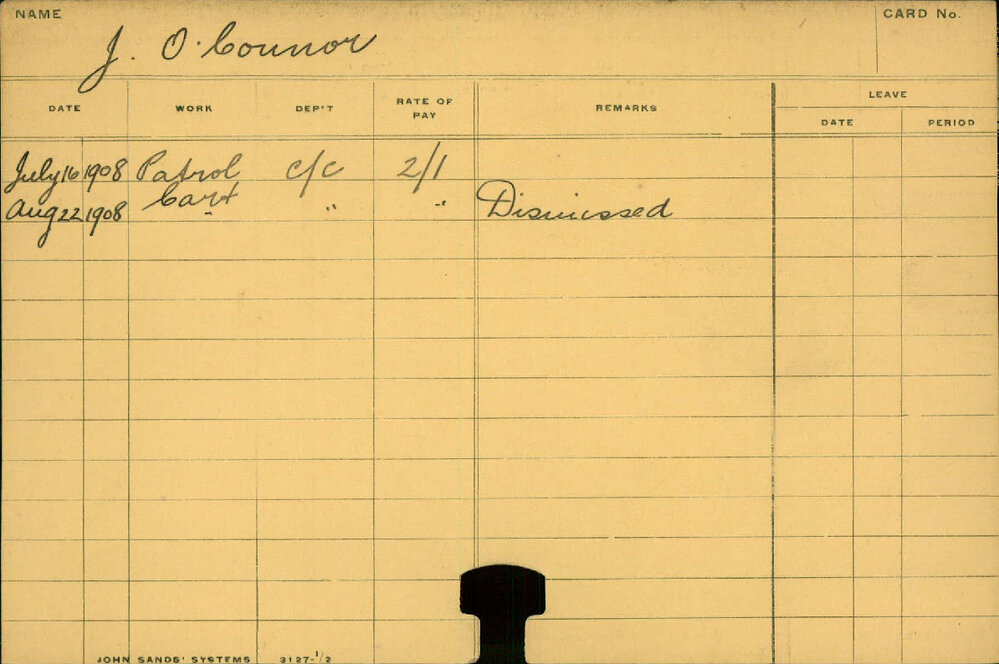 NAME
CARD No.
J. O'Connor
DATE WORK DEP'T RATE OF PAY REMARKS LEAVE
DATE PERIOD
July 16 1908 Patrol c/c 2/1
Cart
Aug 22 1908 " " " Dismissed
JOHN SANDS' SYSTEMS 3127-1/2